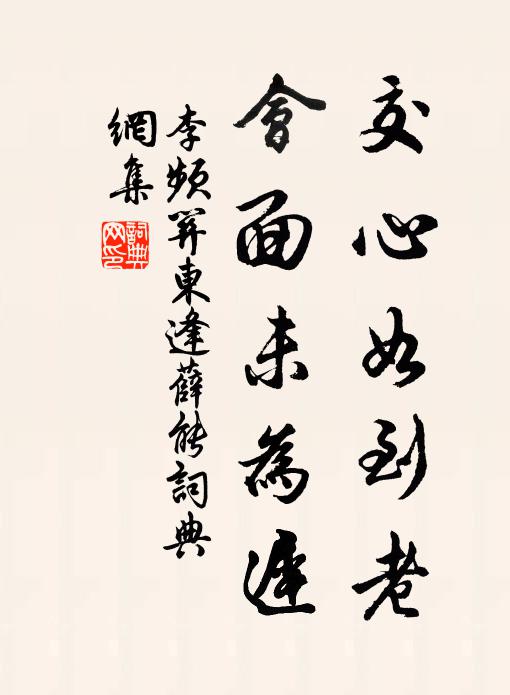 交心如到老
會面未為遲
李頻羿東逢薛能詞典
網集
詞典
网印